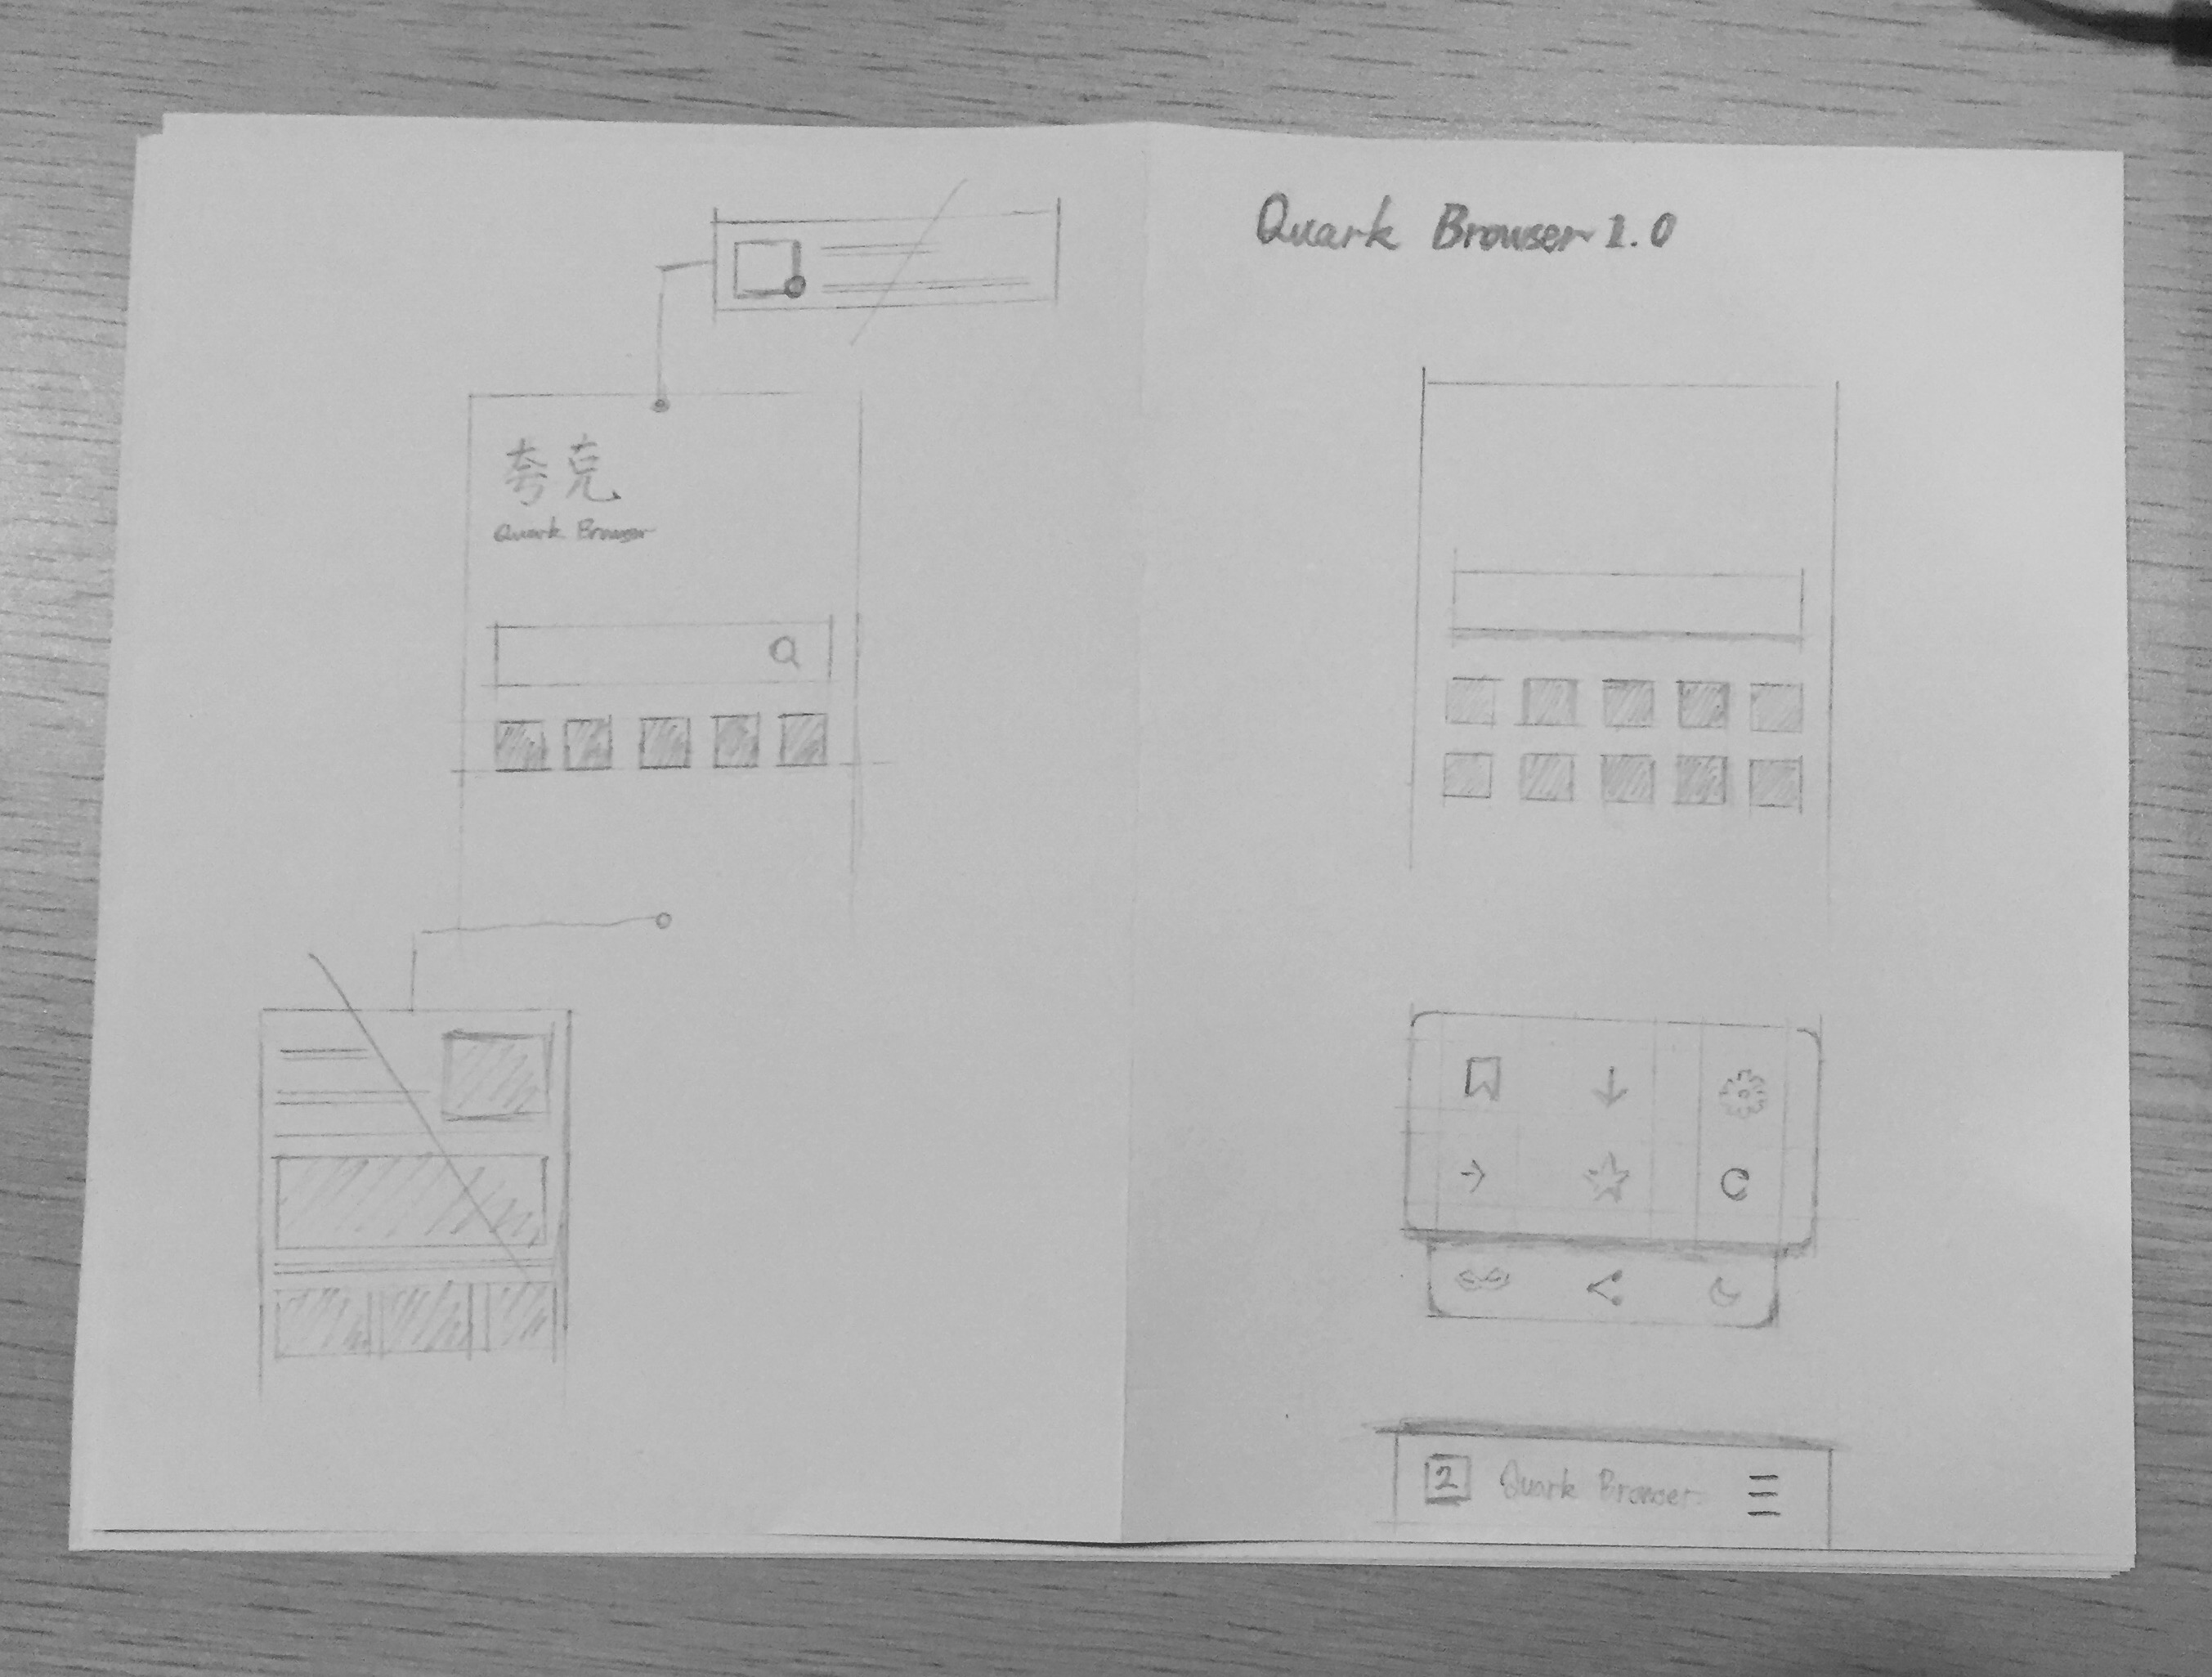 夸克
Quark Browser
Quark Browser 1.0
2 Quark Browser